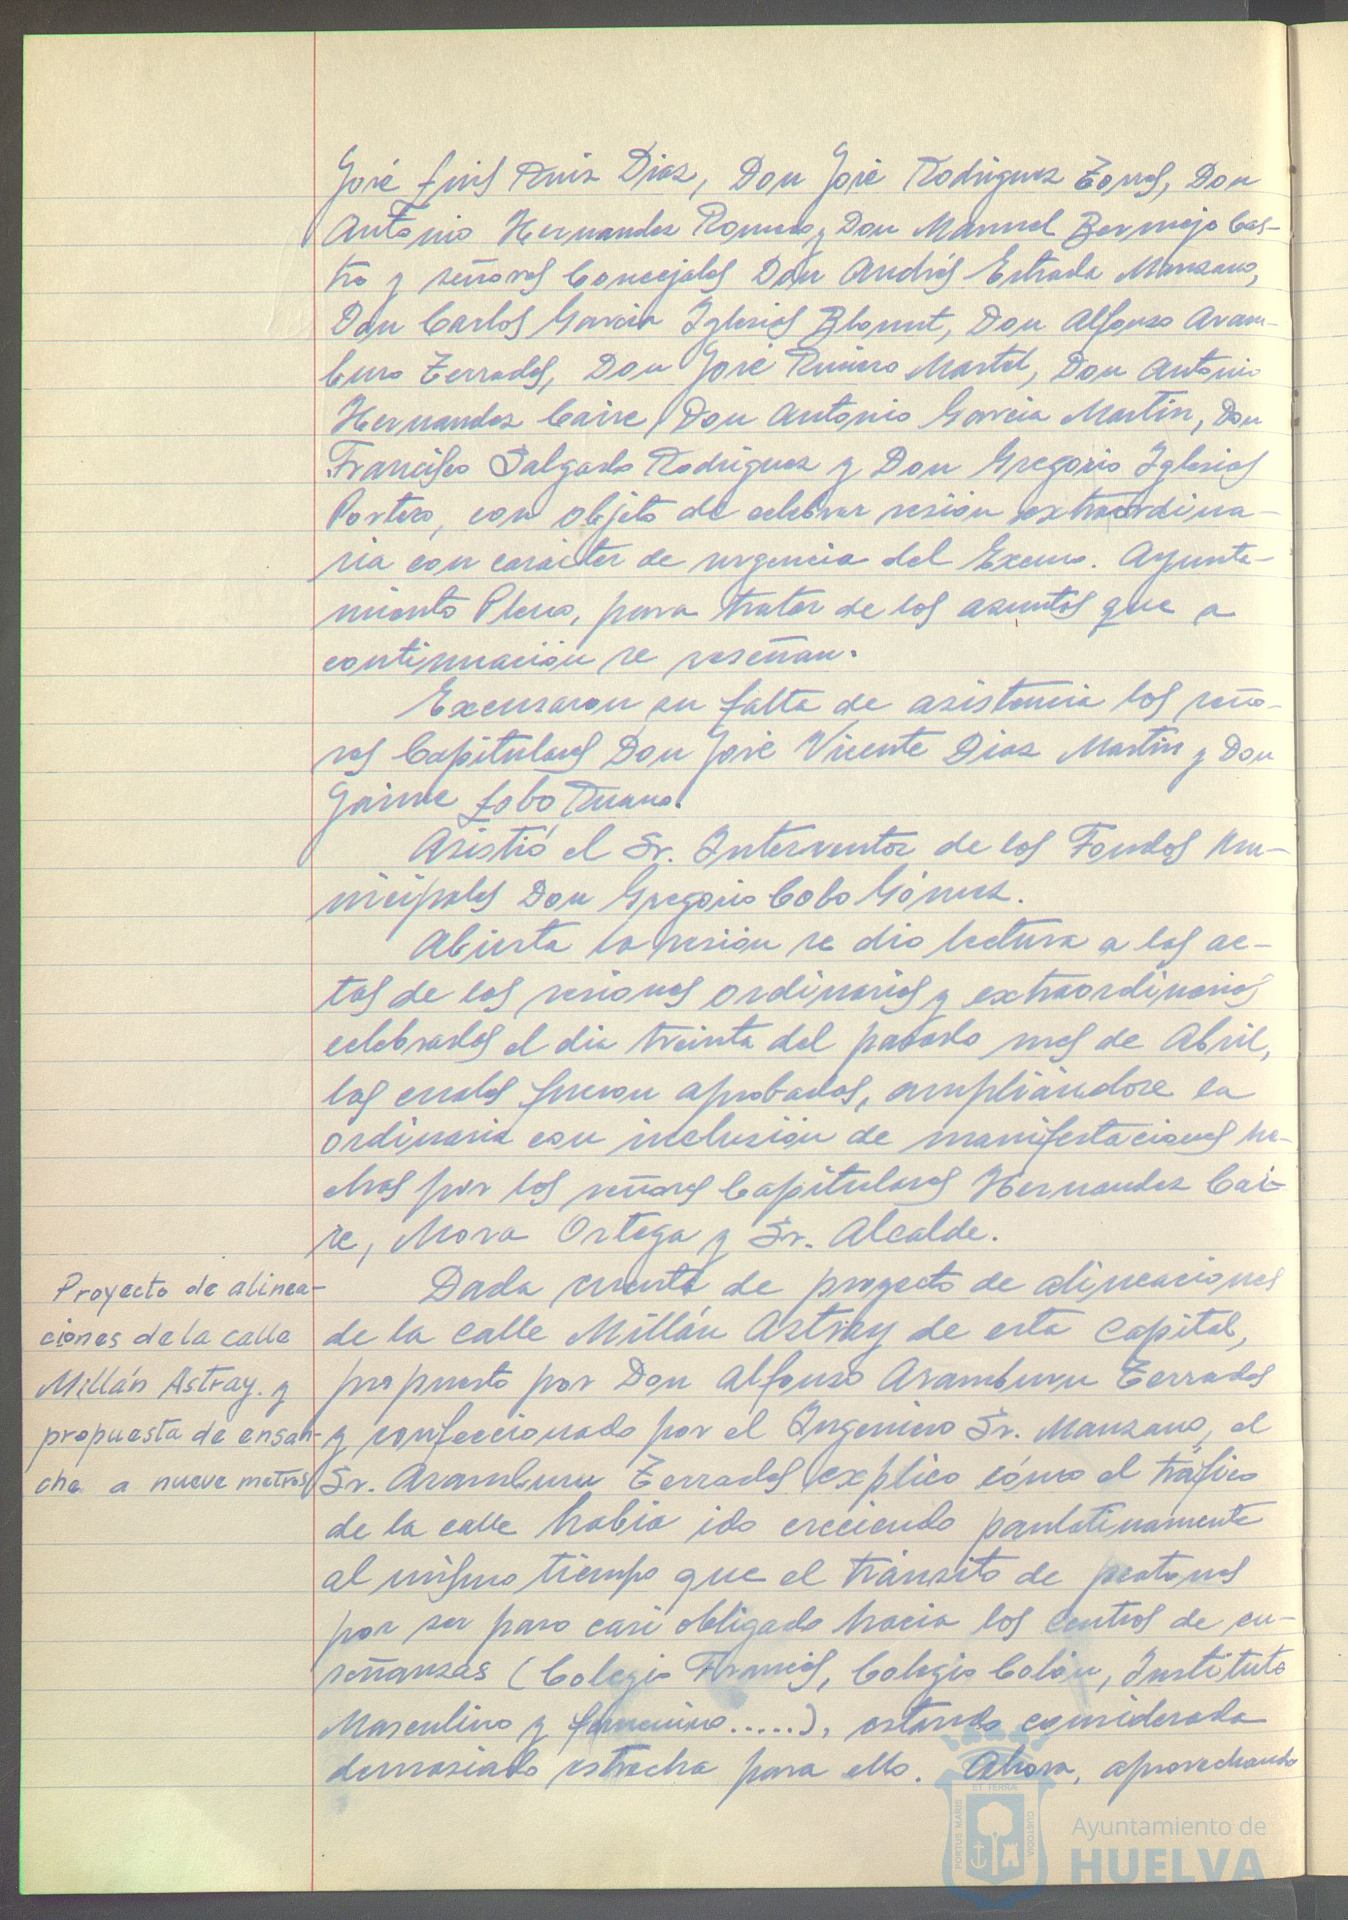 José Luis Ruiz Diaz, Don José Rodriguez Torres, Don
Antonio Hernandez Romero y Don Manuel Bermejo Cas-
tro y señores Concejales Don Andrés Estrada Manzano,
Don Carlos Garcia Iglesias Blount, Don Alfonso Aram-
buro Terrades, Don José Rivero Martel, Don Antonio
Hernandez Caire, Don Antonio Garcia Martin, Don
Francisco Salgado Rodriguez y Don Gregorio Iglesias
Portero, con objeto de celebrar sesion extraordina-
ria con carácter de urgencia del Excmo. Ayunta-
miento Pleno, para tratar de los asuntos que a
continuación se reseñan.
Excusaron su falta de asistencia los seño-
res Capitulares Don José Vicente Diaz Martin y Don
Jaime Lobo Ruano.
Asistió el Sr. Interventor de los Fondos Mu-
nicipales Don Gregorio Cobo Gómez.
Abierta la sesion se dio lectura a las ac-
tas de las sesiones ordinarias y extraordinarias
celebradas el dia treinta del pasado mes de Abril,
las cuales fueron aprobadas, ampliándose la
ordinaria con inclusión de manifestaciones he-
chas por los señores Capitulares Hernandez Cai-
re, Mora Ortega y Sr. Alcalde.
Proyecto de alinea-
ciones de la calle
Millán Astray. y
propuesta de ensan-
che a nueve metros
Dada cuenta de proyecto de alineaciones
de la calle Millán Astray de esta Capital,
propuesto por Don Alfonso Aramburu Terrades
y confeccionado por el Ingeniero Sr. Manzano, el
Sr. Aramburu Terrades explico cómo el tráfico
de la calle habia ido creciendo paulatinamente
al mismo tiempo que el tránsito de peatones
por ser paso casi obligado hacia los centros de en-
señanzas (Colegio Francés, Colegio Colón, Instituto
Masculino y femenino.....), estando considerada
demasiado estrecha para ello. Ahora, aprovechando
ET TERRAE
PORTUS MARIS
CUSTODIA
Ayuntamiento de
HUELVA